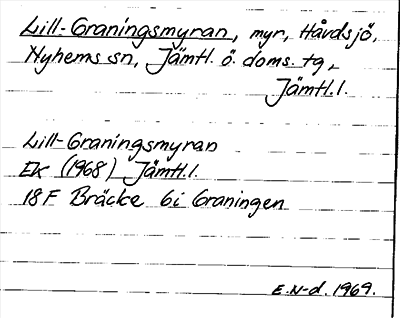 Lill-Graningsmyran, myr, Håvdsjö,
Nyhems sn, Jämtl. ö. doms. tg,
Jämtl. l.
Lill-Graningsmyran
Ek (1968) Jämtl. l.
18F Bräcke 6i Graningen
E. N-d. 1969.